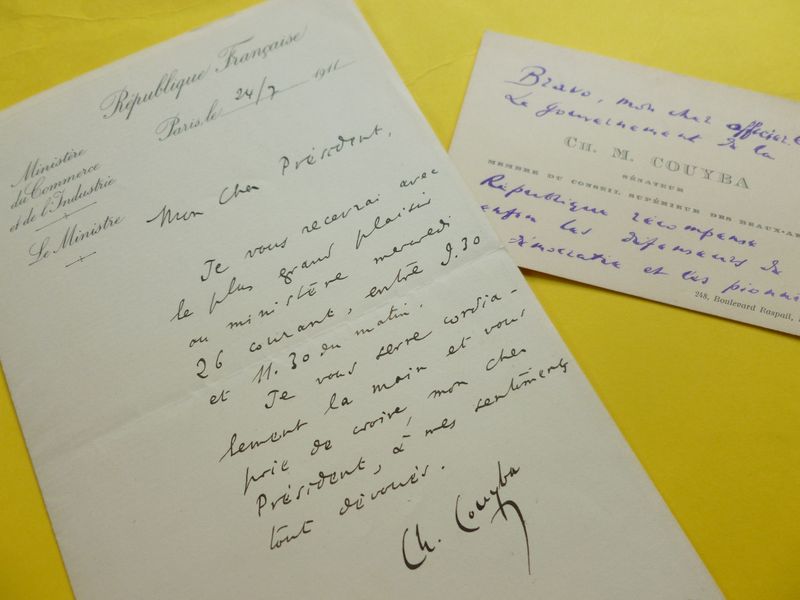 République Française
Paris, le 24/7 1911
Ministère
du Commerce
et de l'Industrie
Le Ministre
Mon Cher Président,
Je vous recevrai avec
le plus grand plaisir
au ministère mercredi
26 courant, entre 9.30
et 11.30 du matin.
Je vous serre cordia-
lement la main et vous
prie de croire, mon cher
Président, à mes sentiments
tout dévoués.
Ch. Couyba
Bravo, mon cher officier
Le gouvernement de la
CH. M. COUYBA
SÉNATEUR
MEMBRE DU CONSEIL SUPÉRIEUR DES BEAUX-AR
République récompense
enfin les défenseurs de
démocratie et les pionni
248, Boulevard Raspail,